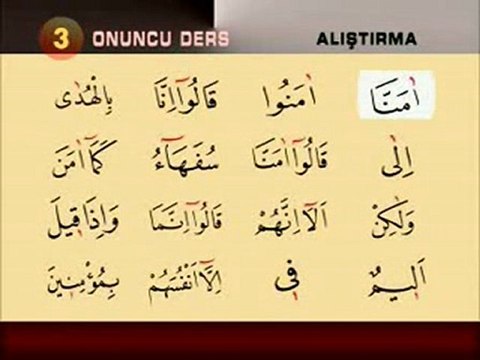 3 ONUNCU DERS ALIŞTIRMA
اٰمَنَّا اٰمَنُوا قَالُٓوا اِنَّا بِالْهُدٰى
اِلٰى قَالُٓوا اٰمَنَّا سُفَهَٓاءُ كَمَٓا اٰمَنَ
وَلٰكِنْ اَلَٓا اِنَّهُمْ قَالُٓوا اِنَّمَا وَاِذَا قٖيلَ
اَلٖيمٌ فٖى اِلَّٓا اَنْفُسَهُمْ بِمُؤْمِنٖينَ